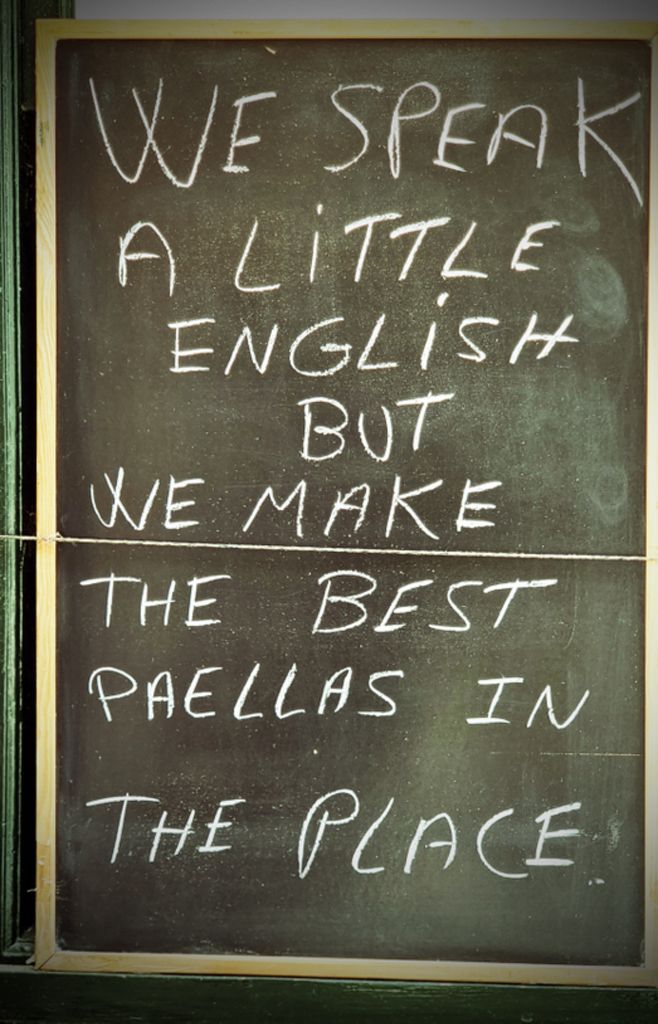 WE SPEAK
A LiTTLE
ENGLiSH
BUT
WE MAKE
THE BEST
PAELLAS IN
THE PLACE.